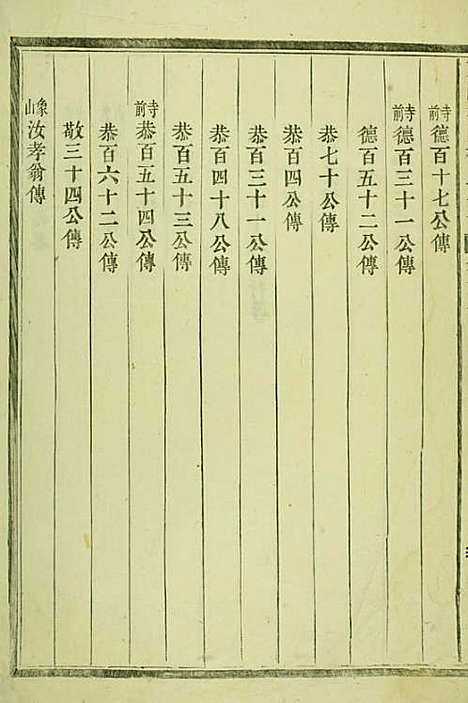 寺前德百十七公傳
寺前德百三十一公傳
德百五十二公傳
恭七十公傳
恭百四公傳
恭百三十一公傳
恭百四十八公傳
恭百五十三公傳
寺前恭百五十四公傳
恭百六十二公傳
敬三十四公傳
象山汝孝翁傳